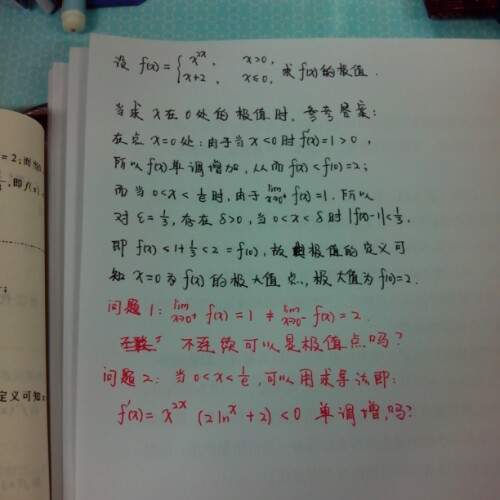 设 f(x) = { x^{2x}, x>0,
x+2, x≤0, 求f(x)的极值.
当求 x 在 0 处的极值时, 参考答案:
在 x=0处: 由于当 x<0时 f'(x)=1>0,
所以 f(x)单调增加, 从而 f(x)<f(0)=2;
而当 0<x<1/e 时, 由于 lim_{x→0+} f(x)=1. 所以
对 ε=1/3, 存在 δ>0, 当 0<x<δ 时 |f(x)-1|<1/3.
即 f(x)<1+1/3<2=f(0), 故 极值的定义可
知 x=0为 f(x) 的极大值点, 极大值为f(0)=2.
问题1: lim_{x→0+} f(x)=1 ≠ lim_{x→0-} f(x)=2
不连续可以是极值点吗?
问题2: 当 0<x<1/e, 可以用求导法即:
f'(x)= x^{2x} (2ln^x+2)<0 单调增吗?
= 2; 而当
, 即 f(x)
;
定义可知x